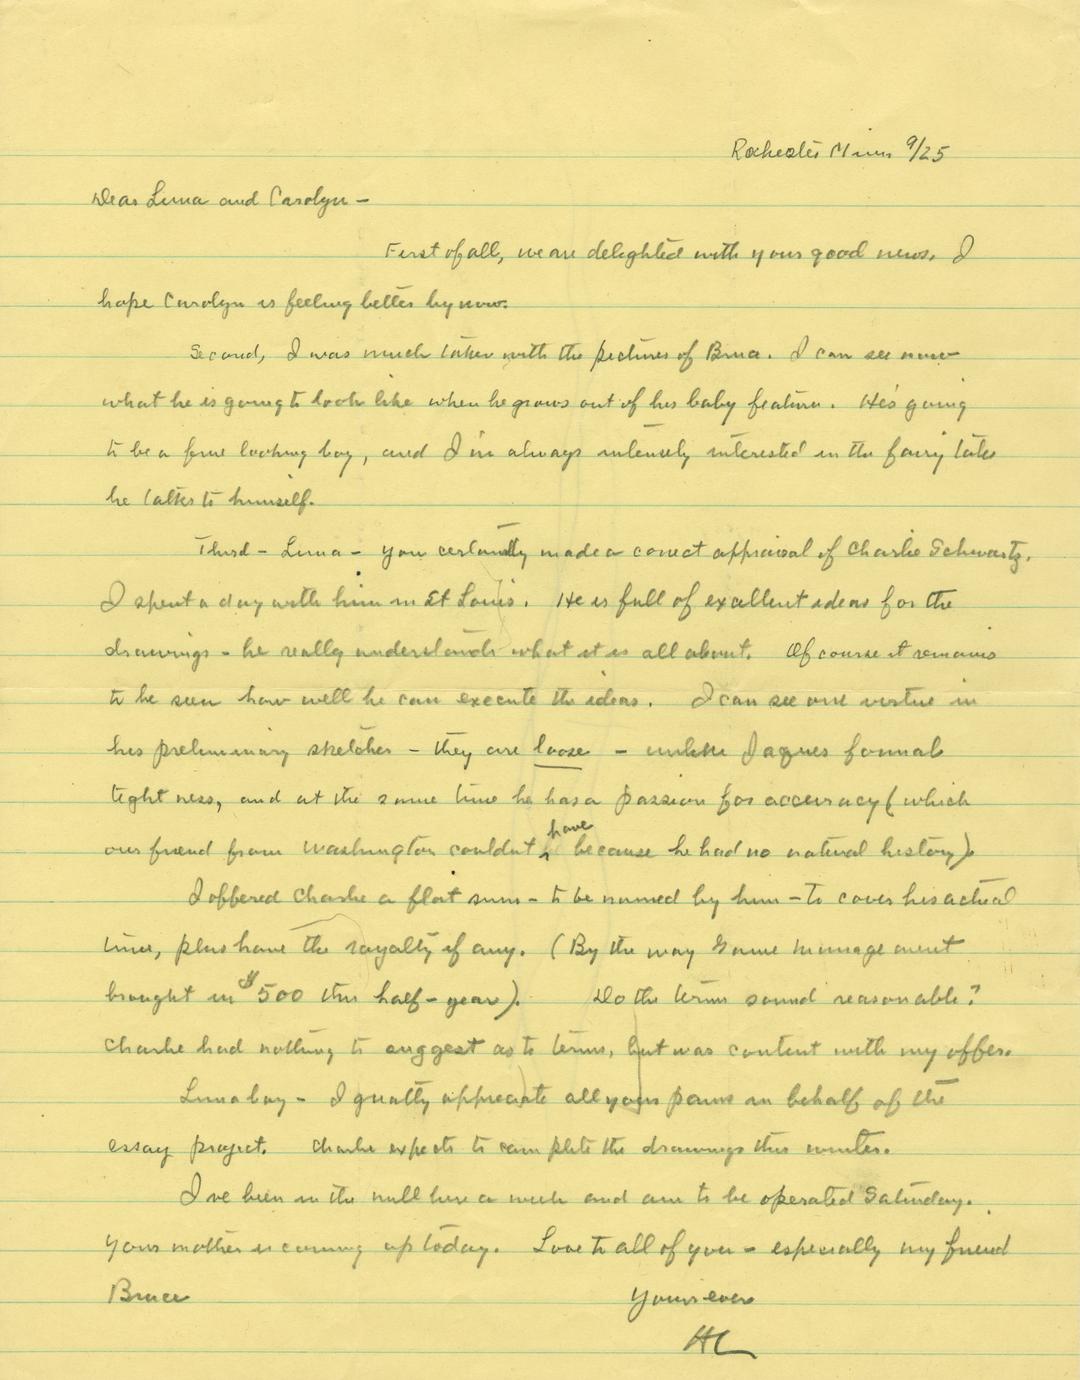 Rochester Minn 9/25
Dear Luna and Carolyn –
First of all, we are delighted with your good news. I
hope Carolyn is feeling better by now.
Second, I was much taken with the pictures of Bruce. I can see now
what he is going to look like when he grows out of his baby features. He's going
to be a fine looking boy, and I'm always intensely interested in the fairy tales
he talks to himself.
Third – Luna – you certainly made a correct appraisal of Charlie Schwartz.
I spent a day with him in St Louis. He is full of excellent ideas for the
drawings – he really understands what it is all about. Of course it remains
to be seen how well he can execute the ideas. I can see one virtue in
his preliminary sketches – they are loose – unlike Jaques formal
tightness, and at the same time he has a passion for accuracy (which
our friend from Washington couldn't have because he had no natural history).
I offered Charlie a flat sum – to be named by him – to cover his actual
time, plus have the royalty if any. (By the way Game Management
brought in $500 this half-year). Do the terms sound reasonable?
Charlie had nothing to suggest as to terms, but was content with my offer.
Luna boy – I greatly appreciate all your pains in behalf of the
essay project. Charlie expects to complete the drawings this winter.
I've been in the mill here a week and am to be operated Saturday.
Your mother is coming up today. Love to all of you – especially my friend
Bruce
Yours ever